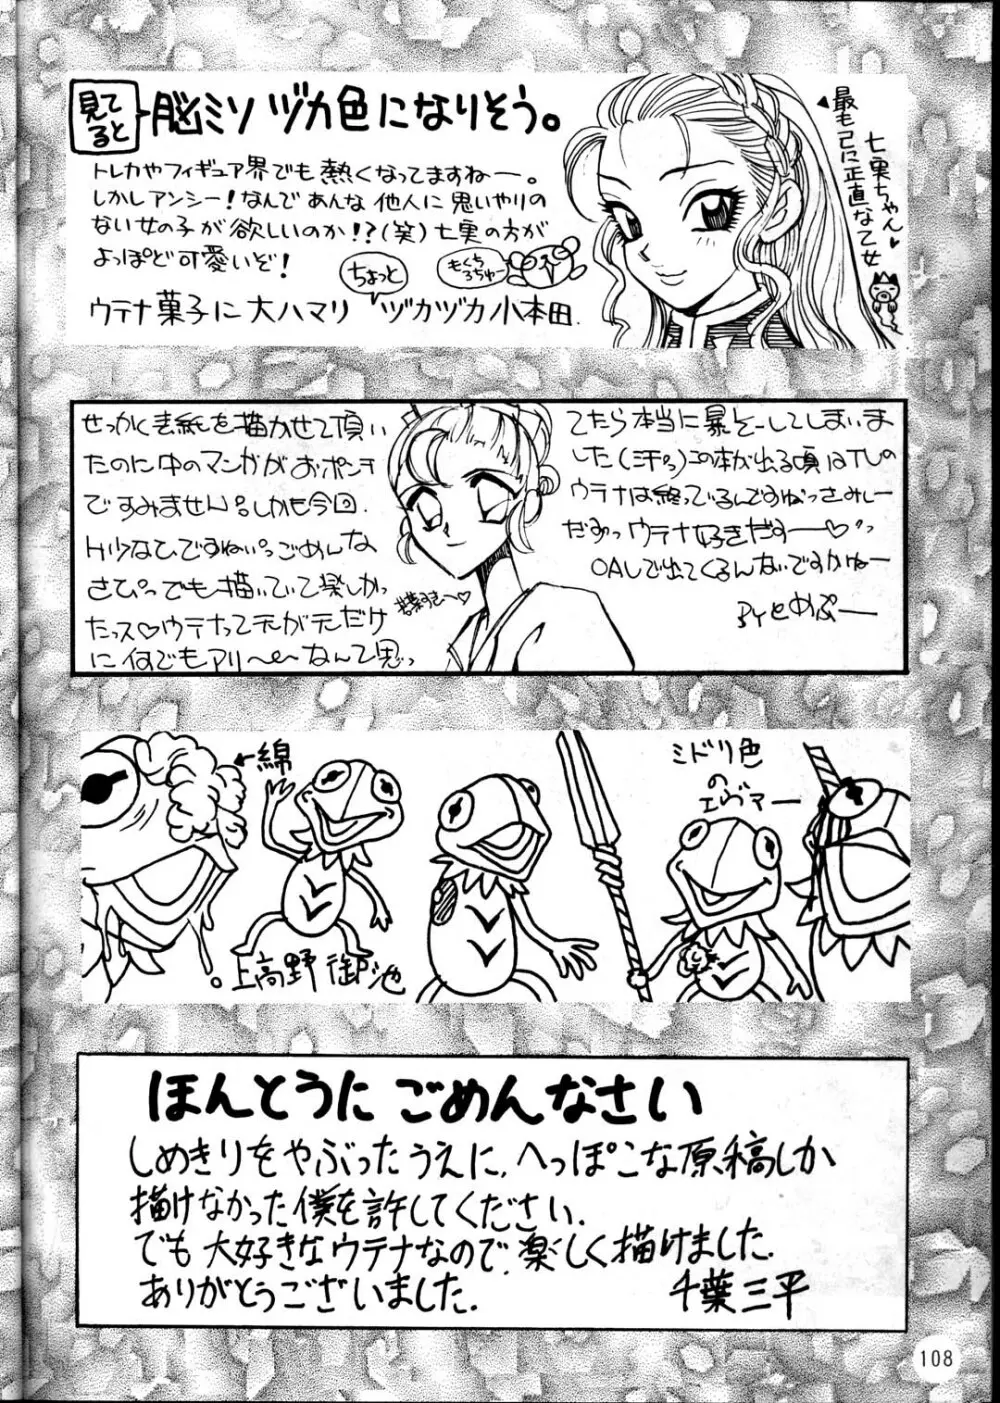 見てると
脳ミソ ヅカ色になりそう。
トレカやフィギュア界でも熱くなってますねー。
しかしアンシー!なんであんな他人に思いやりの
ない女の子が欲しいのか!?(笑)七実の方が
よっぽど可愛いぞ!
ちょっと
もぐちろちゅー
ウテナ菓子に大ハマリ ヅカヅカ小本田.
七実ちゃん♥
最も己に正直な乙女
せっかく表紙を描かせて頂い
たのに中のマンガがおポンチ
ですみません。しかも今回
H少なひですねぃっごめんな
さひっでも描いていて楽しかっ
たっス♡ウテナって元が元だけ
に何でもアリ〜〜なんて思っ
てたら本当に暴そーしてしまいま
した(汗っ)この本が出る頃はTVの
ウテナは終っているんですねっさみしー
だすっウテナ好きだすー♡っ
OAVで出てくるんないですかねー
BYとめぷー
←綿
ミドリ色
の
エヴァー
。上高野 御池
ほんとうに ごめんなさい
しめきりをやぶったうえに、へっぽこな原稿しか
描けなかった僕を許してください.
でも大好きなウテナなので、楽しく描けました.
ありがとうございました.
千葉三平
108